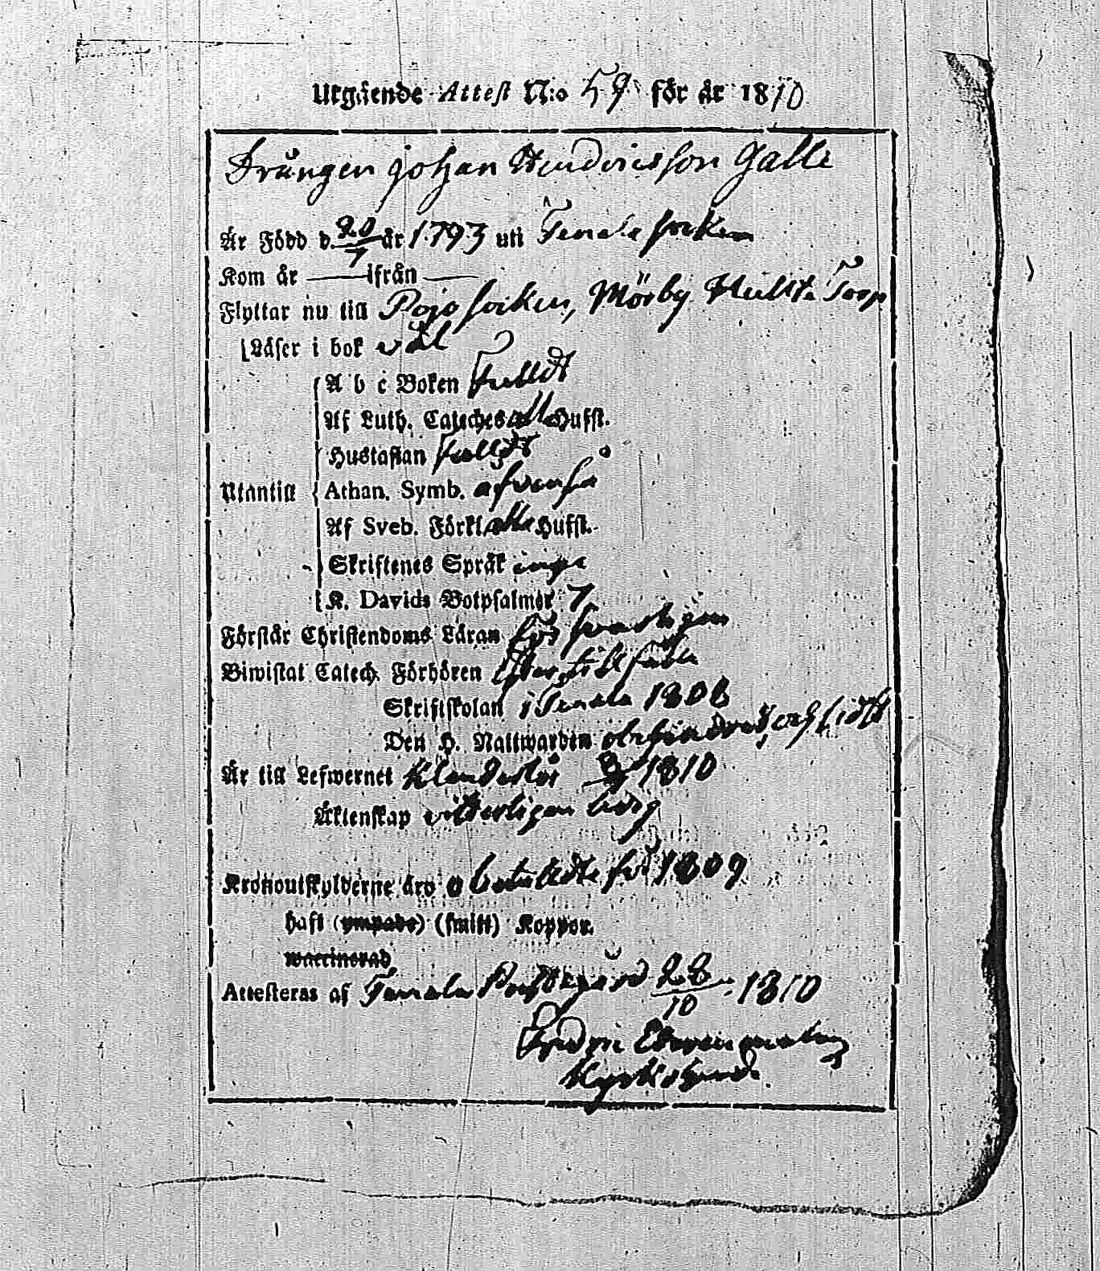 Utgående Attest N:o 59 för år 1810
Drängen Johan Hendricsson Galle
Är Född d. 20/7 år 1793 uti Tenala socken
Kom år — ifrån —
Flyttar nu till Pojo socken, Mörby Torp
Läser i bok väl
A b c Boken Fulldt
Af Luth. Cateches all Hufst.
Hustaflan fulldt
Utantill Athan. Symb. äfvenså
Af Sveb. Förkl alla Hufst.
Skriftenes Språk inga
K. Davids Botpsalmer 7
Förstår Christendoms Läran försvarligen
Biwistat Catech. Förhören
Skriftskolan i Tenala 1808
Den H. Nattwarden obehindrad, och sidst
Är till Lefwernet klanderlös 1810
Äktenskap vitterligen ledig
Kronoutskylderne äro betaldte för 1809
haft (ympade) (smitt) Koppor.
waccinerad
Attesteras af Tenala Prestegård 28/10 1810